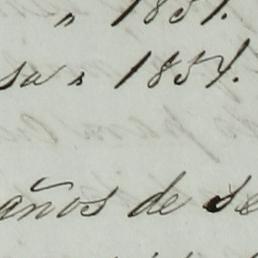 " 1851.
sa " 1854.
años de se